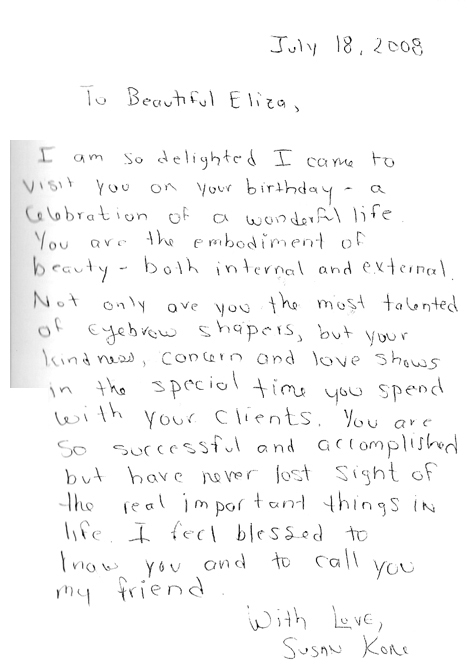 July 18, 2008
To Beautiful Eliza,
I am so delighted I came to
visit you on your birthday - a
Celebration of a wonderful life.
You are the embodiment of
beauty - both internal and external.
Not only are you the most talented
of eyebrow shapers, but your
kindness, concern and love shows
in the special time you spend
with your clients. You are
so successful and accomplished
but have never lost sight of
the real important things in
life. I feel blessed to
know you and to call you
my friend.
With Love,
Susan